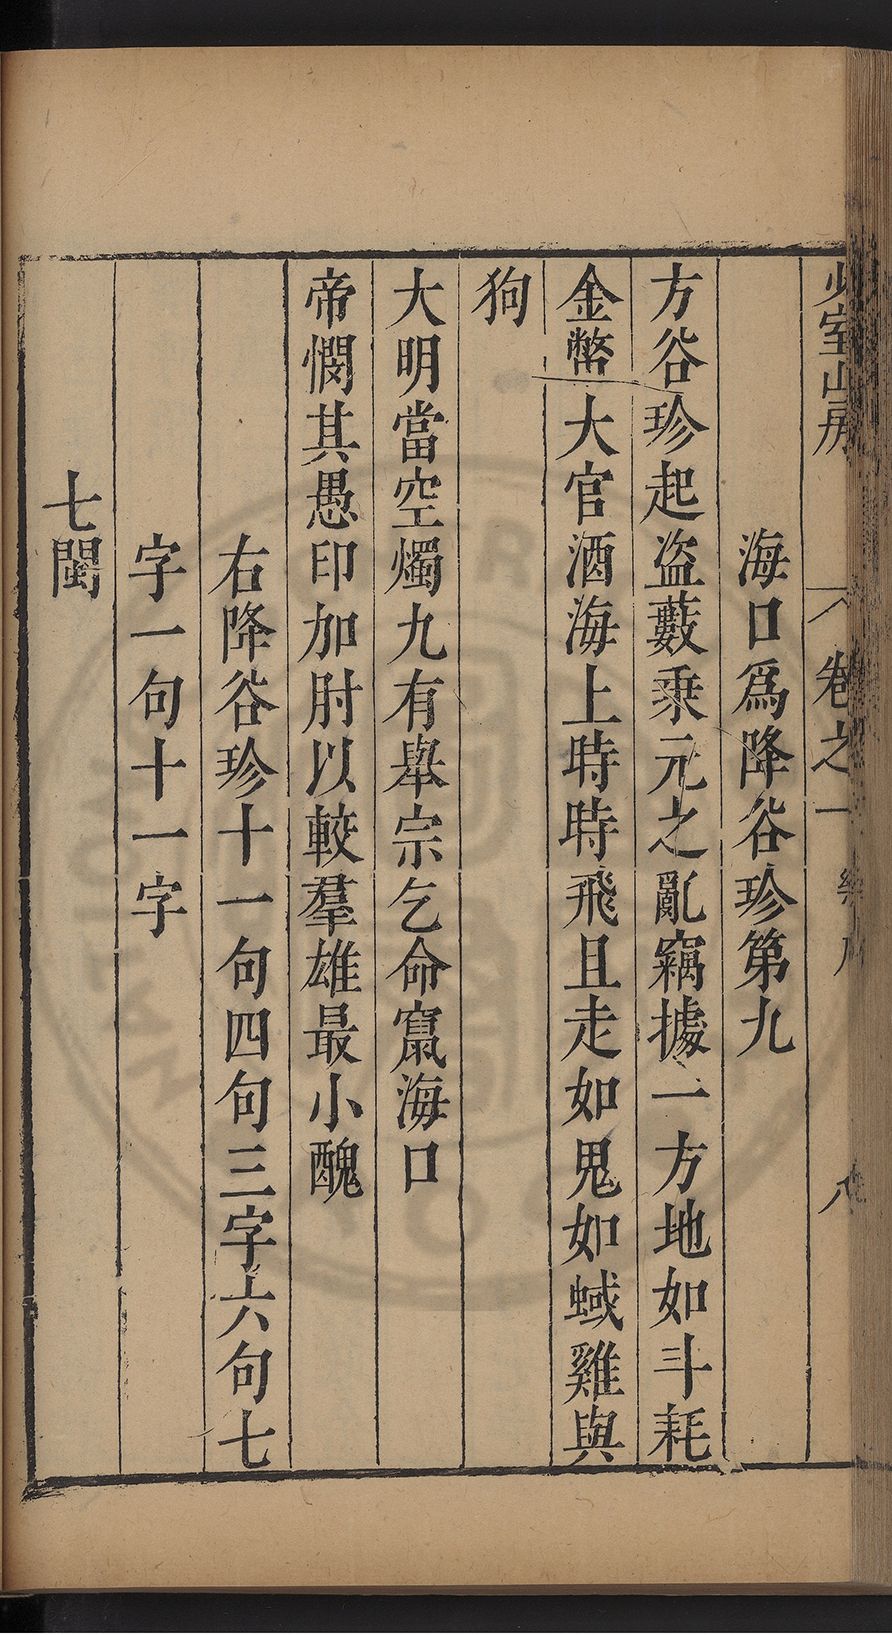 少室山房 卷之一 樂府 八
海口爲降谷珍第九
方谷珍起盜藪乗元之亂竊據一方地如斗耗
金幣大官酒海上時時飛且走如鬼如蜮雞與
狗
大明當空燭九有舉宗乞命竄海口
帝憫其愚印加肘以較羣雄最小醜
右降谷珍十一句四句三字六句七
字一句十一字
七閩